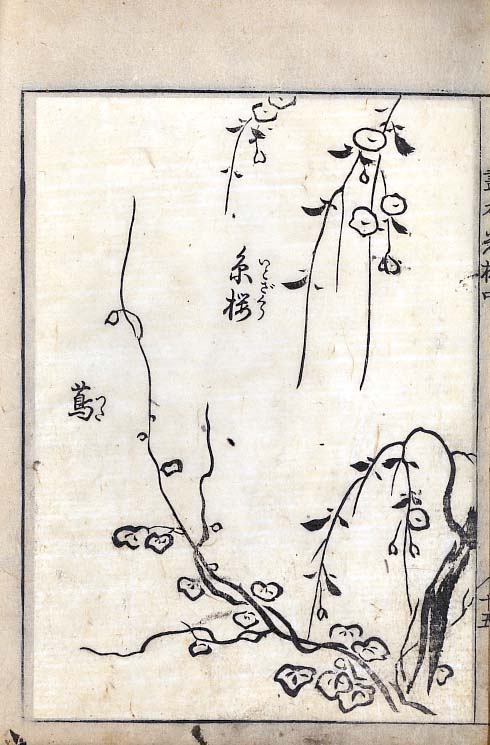 糸桜
いとざくら
蔦
つた
十五